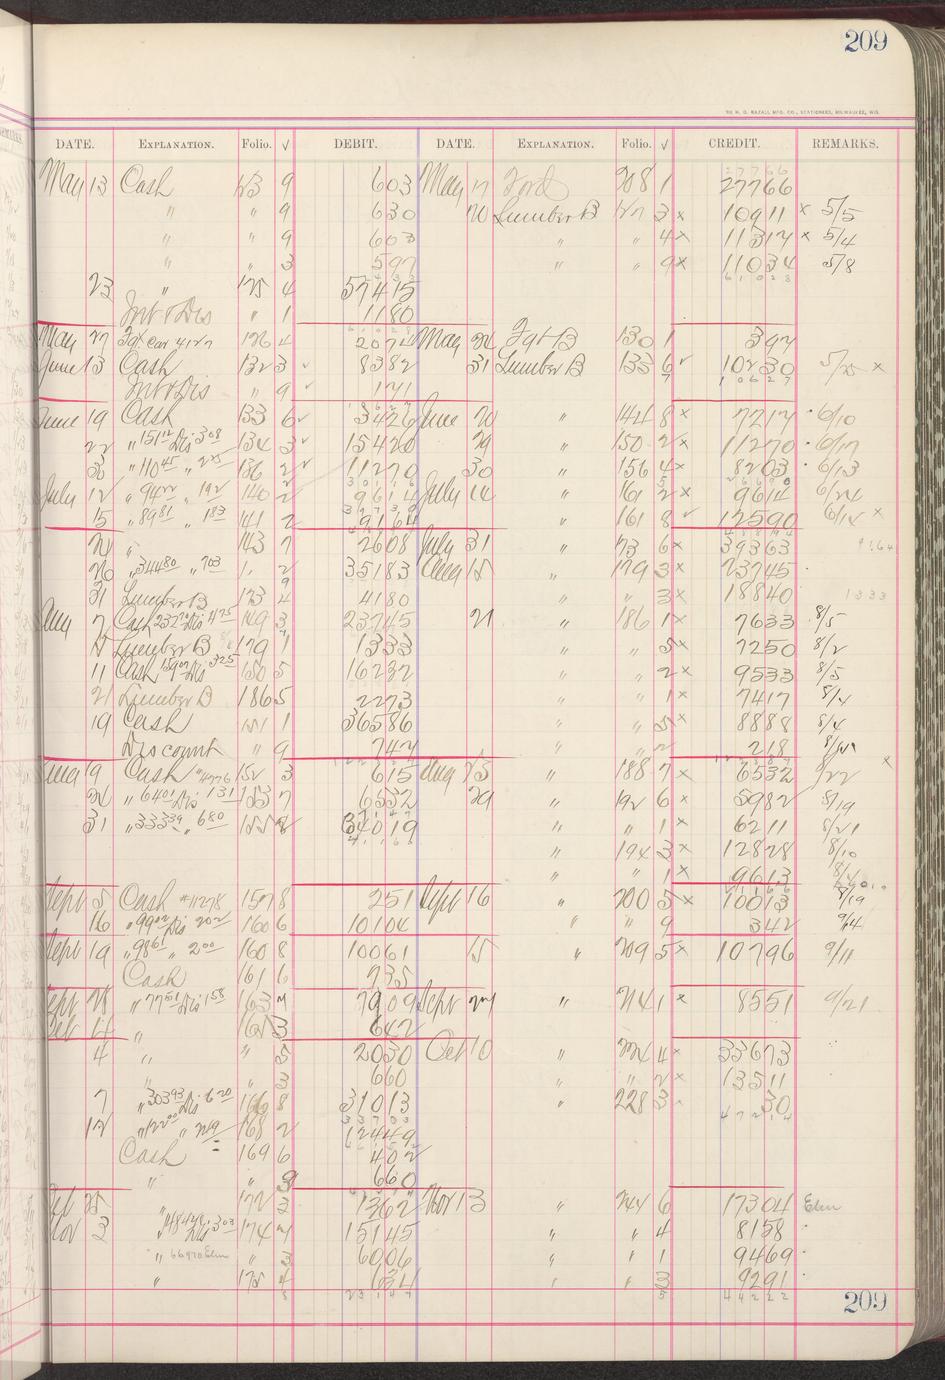 209
THE H. G. RAZALL MFG. CO., STATIONERS, MILWAUKEE, WIS.
DATE. EXPLANATION. Folio. √ DEBIT. DATE. EXPLANATION. Folio. √ CREDIT. REMARKS.
May 13 Cash 9 603 May 17 208 1 27766
" " 9 630 20 Lumber B 127 3 × 10911 × 5/5
" " 9 603 " " 4 × 11317 × 5/4
" " 3 597 " " 9 × 11034 5/8
23 " 125 4 57415
Int & Dis " 1 1180
May 27 Car 4127 126 4 2074 May 130 1 397
June 13 Cash 132 3 8382 31 Lumber B 133 6 10230 5/25 ×
Int & Dis " 9 171
June 19 Cash 133 6 3426 June 20 " 144 8 × 7217 6/10
22 " 151 12 Dis 3 08 134 3 15420 29 " 150 2 × 11270 6/17
30 " 110 45 " 2 25 136 2 11270 30 " 156 4 × 8203 6/13
July 12 " 94 22 " 1 92 140 2 9614 July 14 " 161 2 × 9614 6/24
15 " 89 81 " 1 83 141 2 9164 " 161 8 12590 6/14 ×
20 " 143 7 2608 July 31 " 173 6 × 39363 9164
20 " 344 80 " 7 03 2 35183 Aug 15 " 179 3 × 23745
31 Lumber B 173 4 4180 " " 3 × 18840 1333
Aug 7 Cash 232 70 Dis 4 75 149 3 23745 21 " 186 1 × 7633 8/5
Lumber B 179 1 1333 " " 5 × 7250 8/2
11 Cash 159 07 Dis 3 25 150 5 16232 " " 2 × 9533 8/5
21 Lumber B 186 5 2273 " " 1 × 7417 8/4
19 Cash 151 1 36586 " " 5 × 8888 8/4
Discount " 9 747 " " 2 218
Aug 19 Cash #4776 152 3 615 Aug 25 " 188 7 × 6532 8/22 ×
26 " 64 01 Dis 1 31 153 7 6532 29 " 192 6 × 5982 8/19
31 " 333 39 " 6 80 155 34019 " " 1 × 6211 8/21
" 194 3 × 12828 8/10
" " 1 × 9613
Sept 5 Cash #11278 157 8 251 Sept 16 " 200 5 × 10013 8/19
16 " 99 02 Dis 2 02 160 6 10104 " " 9 342 9/4
Sept 19 " 98 61 " 2 00 160 8 10061 15 " 209 5 × 10796 9/11
Cash 161 6 735
Sept 28 " 77 51 Dis 1 58 163 7909 Sept 27 " 214 1 × 8551 9/21
Oct " 165 3 642
4 " " 5 2030 Oct 10 " 224 4 × 33673
" " 3 660 " " 2 × 13511
7 " 303 93 Dis 6 20 166 8 31013 " 228 3 30
12 " 122 00 " 2 49 168 2 12449
Cash 169 6 402
" " 660
Oct 25 " 172 3 1362 Nov 13 " 244 6 17304 Elm
Nov 3 " 148 42 Dis 3 03 174 15145 " " 4 8158
" 66970 Elm " 3 6006 " " 1 9469
" 175 4 634 " " 3 9291
23147 44222
209